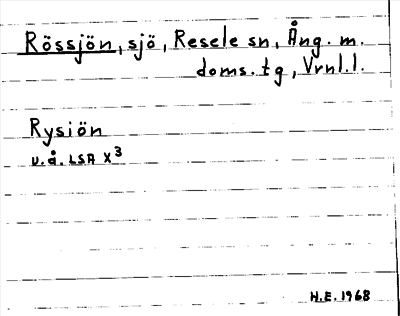 Rössjön, sjö, Resele sn, Ång. m.
doms.tg, Vrnl.l.
Rysiön
u.å. LSA X³
H.E. 1968